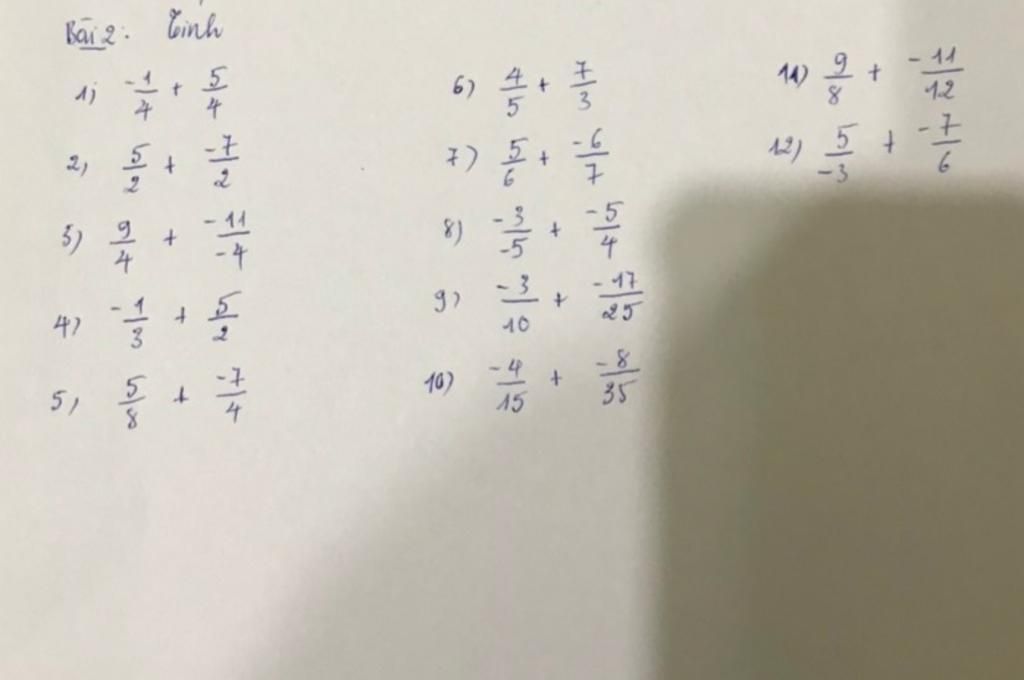 Bài 2: Tính
1) -1/4 + 5/4
2) 5/2 + -7/2
3) 9/4 + -11/-4
4) -1/3 + 5/2
5) 5/8 + -7/4
6) 4/5 + 7/3
7) 5/6 + -6/7
8) -3/-5 + -5/4
9) -3/10 + -17/25
10) -4/15 + -8/35
11) 9/8 + -11/12
12) 5/-3 + -7/6